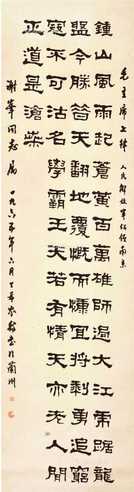 毛主席七律 人民解放軍佔領南京
鍾山風雨起蒼黃百萬雄師過大江虎踞龍
盤今勝昔天翻地覆慨而慷宜將剩勇追窮
寇不可沽名學霸王天若有情天亦老人間
正道是滄桑
謝華同志屬
一九六五年六月丁希農書於蘭州